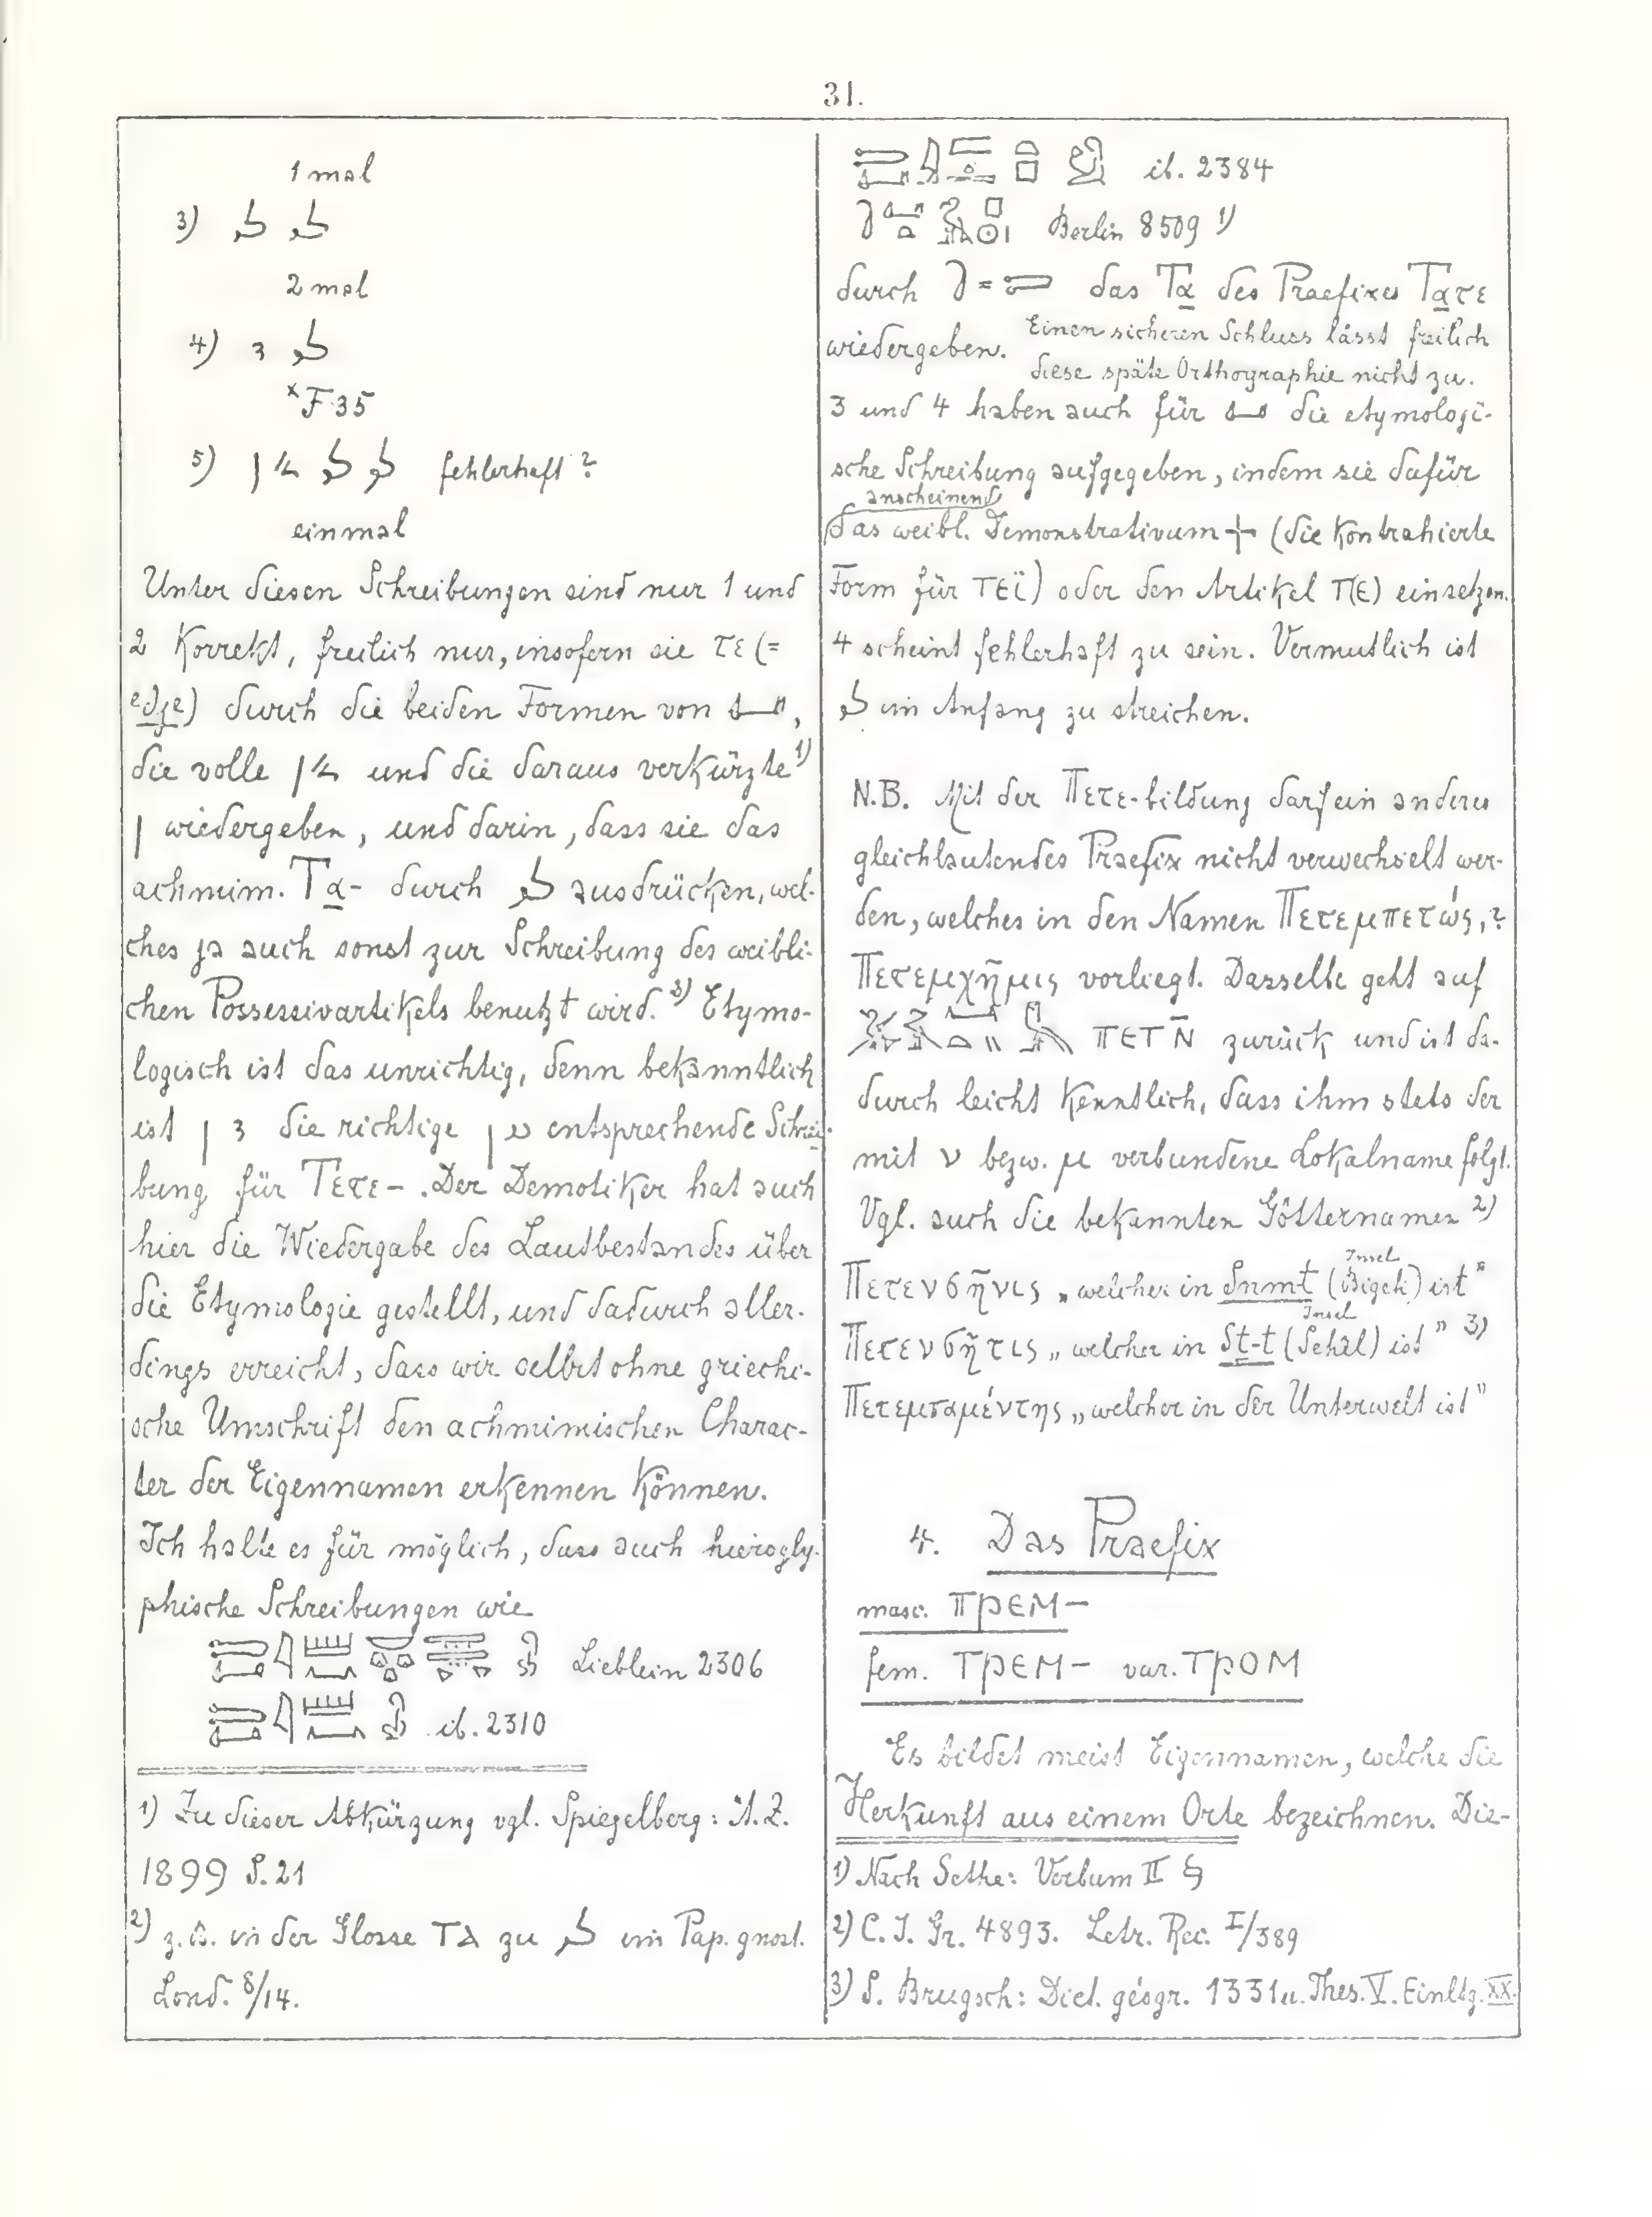 31.
1 mal
3)
2 mal
4)
*F 35
5) fehlerhaft?
einmal
Unter diesen Schreibungen sind nur 1 und
2 korrekt, freilich nur, insofern sie τε (=
durch die beiden Formen von ,
die volle und die daraus verkürzte 1)
wiedergeben, und darin, dass sie das
achmim. Τα- durch ausdrücken, wel-
ches ja auch sonst zur Schreibung des weibli-
chen Possessivartikels benutzt wird. 3) Etymo-
logisch ist das unrichtig, denn bekanntlich
ist die richtige entsprechende Schrei-
bung für Τετε-. Der Demotiker hat auch
hier die Wiedergabe des Lautbestandes über
die Etymologie gestellt, und dadurch aller-
dings erreicht, dass wir selbst ohne griechi-
sche Umschrift den achmimischen Charac-
ter der Eigennamen erkennen können.
Ich halte es für möglich, dass auch hierogly-
phische Schreibungen wie
Lieblein 2306
ib. 2310
1) Zu dieser Abkürzung vgl. Spiegelberg: Ä.Z.
1899 S. 21
2) z.B. in der Glosse ⲧⲁ zu im Pap. gnost.
Lond. 8/14.
ib. 2384
Berlin 8509 1)
durch = das Τα des Praefixes Τατε
wiedergeben. Einen sicheren Schluss lässt freilich
diese späte Orthographie nicht zu.
3 und 4 haben auch für die etymologi-
sche Schreibung aufgegeben, indem sie dafür
anscheinend
das weibl. Demonstrativum ϯ (die kontrahierte
Form für ⲧⲉⲓ̈) oder den Artikel ⲧ(ⲉ) einsetzen.
4 scheint fehlerhaft zu sein. Vermutlich ist
im Anfang zu streichen.
N.B. Mit der Πετε-bildung darf ein anderes
gleichlautendes Praefix nicht verwechselt wer-
den, welches in den Namen Πετεμπετώς,?
Πετεμχῆμις vorliegt. Dasselbe geht auf
ⲡⲉⲧⲛ̄ zurück und ist da-
durch leicht kenntlich, dass ihm stets der
mit ν bezw. μ verbundene Lokalname folgt.
Vgl. auch die bekannten Götternamen 2)
Πετενσῆνις „welcher in Snmt (Insel Bigeh) ist"
Πετενσῆτις „welcher in St-t (Insel Sehêl) ist" 3)
Πετεμπαμέντης „welcher in der Unterwelt ist"
4. Das Praefix
masc. ⲡⲣⲉⲙ-
fem. ⲧⲣⲉⲙ- var. ⲧⲣⲟⲙ
Es bildet meist Eigennamen, welche die
Herkunft aus einem Orte bezeichnen. Die-
1) Nach Sethe: Verbum II §
2) C.I. Gr. 4893. Letr. Rec. I/389
3) S. Brugsch: Dict. géogr. 1331 u. Thes. V. Einltg. XX.